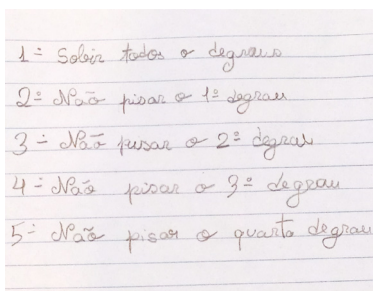 1- Sobir todos o degraus
2- Não pisar o 1º degrau
3- Não pusar o 2º degrau
4- Não pisar o 3º degrau
5- Não pisar o quarta degrau